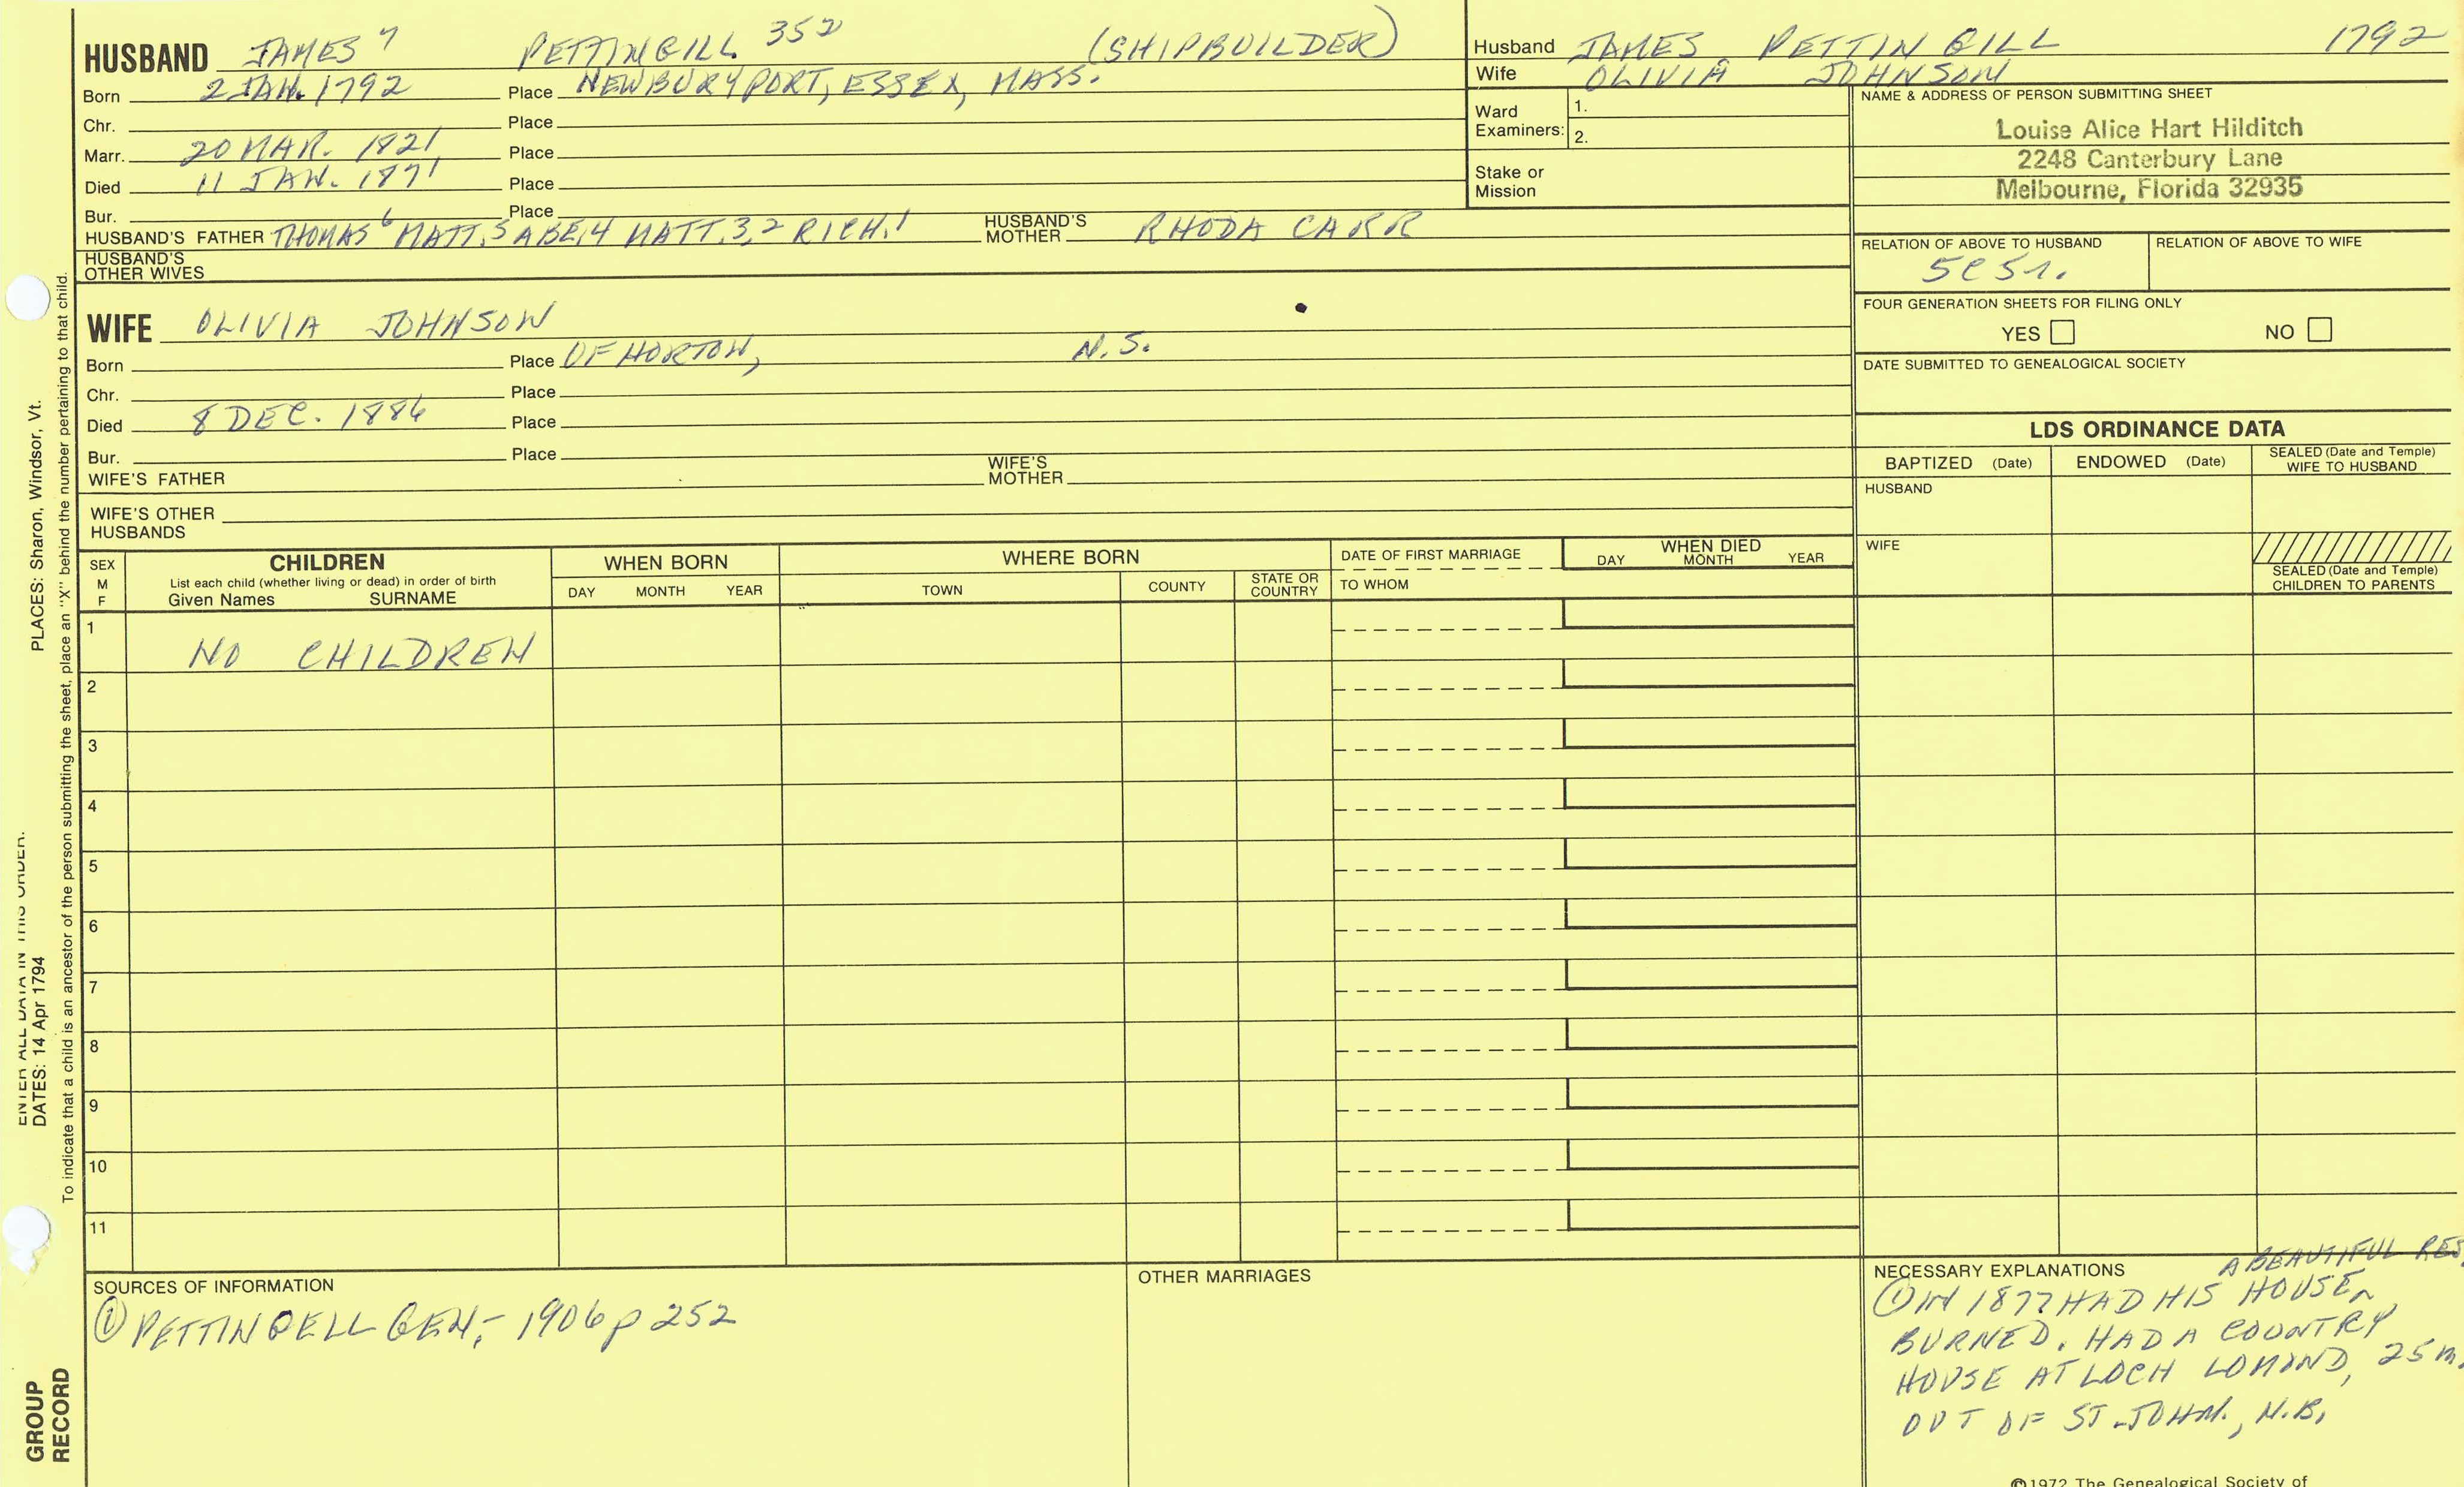 HUSBAND JAMES 7 PETTINGILL 352 (SHIPBUILDER)
Born 2 JAN. 1792 Place NEWBURYPORT, ESSEX, MASS.
Chr. Place
Marr. 20 MAR. 1821 Place
Died 11 JAN. 1871 Place
Bur. Place
HUSBAND'S FATHER THOMAS 6 MATT. 5 ABE. 4 MATT. 3, 2 RICH. 1 HUSBAND'S MOTHER RHODA CARR
HUSBAND'S OTHER WIVES
WIFE OLIVIA JOHNSON
Born Place OF HORTON, N.S.
Chr. Place
Died 8 DEC. 1886 Place
Bur. Place
WIFE'S FATHER WIFE'S MOTHER
WIFE'S OTHER HUSBANDS
Husband JAMES PETTINGILL 1792
Wife OLIVIA JOHNSON
Ward Examiners: 1. 2.
Stake or Mission
NAME & ADDRESS OF PERSON SUBMITTING SHEET
Louise Alice Hart Hilditch
2248 Canterbury Lane
Melbourne, Florida 32935
RELATION OF ABOVE TO HUSBAND RELATION OF ABOVE TO WIFE
FOUR GENERATION SHEETS FOR FILING ONLY
YES NO
DATE SUBMITTED TO GENEALOGICAL SOCIETY
LDS ORDINANCE DATA
BAPTIZED (Date) ENDOWED (Date) SEALED (Date and Temple) WIFE TO HUSBAND
HUSBAND
WIFE
SEALED (Date and Temple) CHILDREN TO PARENTS
SEX M F
CHILDREN
List each child (whether living or dead) in order of birth
Given Names SURNAME
WHEN BORN
DAY MONTH YEAR
WHERE BORN
TOWN COUNTY STATE OR COUNTRY
DATE OF FIRST MARRIAGE
TO WHOM
WHEN DIED
DAY MONTH YEAR
1 NO CHILDREN
2
3
4
5
6
7
8
9
10
11
SOURCES OF INFORMATION
① PETTINGELL GEN, - 1906 p 252
OTHER MARRIAGES
NECESSARY EXPLANATIONS
A BEAUTIFUL RES.
① IN 1877 HAD HIS HOUSE ^
BURNED. HAD A COUNTRY
HOUSE AT LOCH LOMOND, 25 m.
OUT OF ST. JOHN, N.B.
©1972 The Genealogical Society of
ENTER ALL DATA IN THIS ORDER.
DATES: 14 Apr 1794 PLACES: Sharon, Windsor, Vt.
To indicate that a child is an ancestor of the person submitting the sheet, place an "X" behind the number pertaining to that child.
GROUP
RECORD